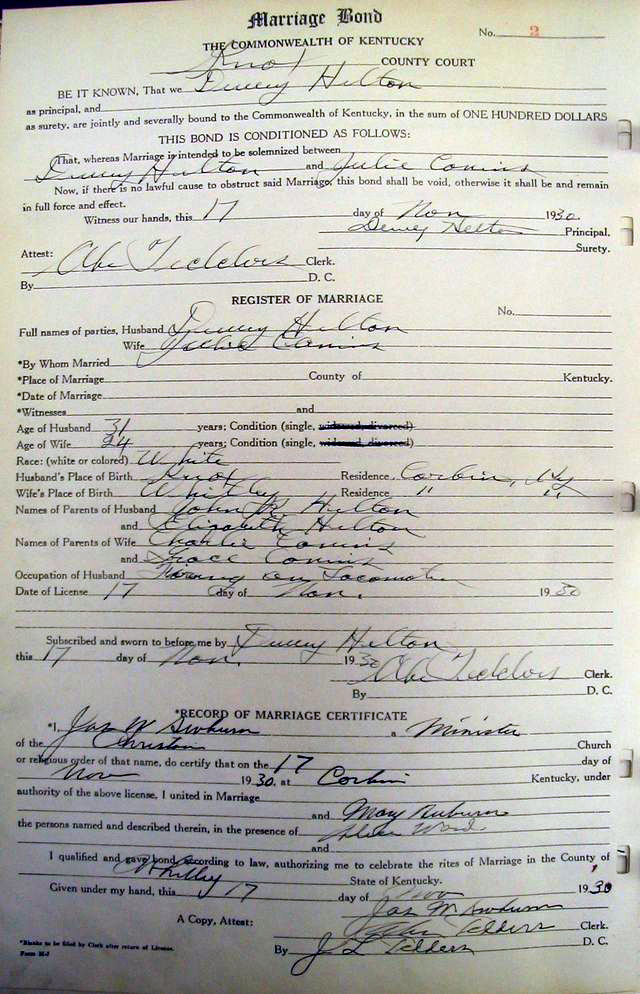 Marriage Bond
No. 3
THE COMMONWEALTH OF KENTUCKY
Knox COUNTY COURT
BE IT KNOWN, That we Dewey Hilton
as principal, and
as surety, are jointly and severally bound to the Commonwealth of Kentucky, in the sum of ONE HUNDRED DOLLARS
THIS BOND IS CONDITIONED AS FOLLOWS:
That, whereas Marriage is intended to be solemnized between
Dewey Hilton and Julie
Now, if there is no lawful cause to obstruct said Marriage, this bond shall be void, otherwise it shall be and remain
in full force and effect.
Witness our hands, this 17 day of Nov 1930.
Dewey Hilton Principal.
Surety.
Attest:
Clerk.
By D. C.
REGISTER OF MARRIAGE
No.
Full names of parties, Husband Dewey Hilton
Wife
*By Whom Married
*Place of Marriage County of Kentucky.
*Date of Marriage
*Witnesses and
Age of Husband 31 years; Condition (single, widowed, divorced)
Age of Wife 24 years; Condition (single, widowed, divorced)
Race: (white or colored) White
Husband's Place of Birth Knox Residence Corbin, Ky
Wife's Place of Birth Whitley Residence " "
Names of Parents of Husband John Hilton
and Elizabeth Hilton
Names of Parents of Wife Charlie
and Grace
Occupation of Husband on
Date of License 17 day of Nov. 1930
Subscribed and sworn to before me by Dewey Hilton
this 17 day of Nov. 1930
Clerk.
By D. C.
*RECORD OF MARRIAGE CERTIFICATE
*I, Jas W a Minister
of the Christian Church
or religious order of that name, do certify that on the 17 day of
Nov 1930, at Corbin Kentucky, under
authority of the above license, I united in Marriage
and Mary
the persons named and described therein, in the presence of
and
I qualified and gave bond according to law, authorizing me to celebrate the rites of Marriage in the County of
Whitley State of Kentucky.
Given under my hand, this 17 day of Nov 1930
Jas W
A Copy, Attest: Clerk.
By J L D. C.
*Blanks to be filed by Clerk after return of License.